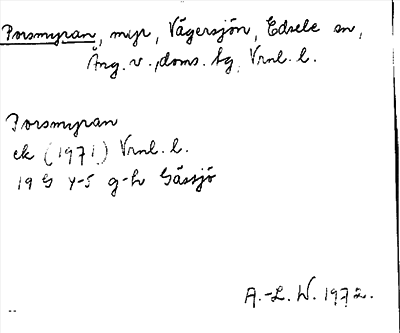 Porsmyran, myr, Vägersjön, Edsele sn,
Ång. v. doms. tg. Vrnl. l.
Porsmyran
ek (1971) Vrnl. l.
19 G 4-5 g-h Gåssjö
A.-L. W. 1972.